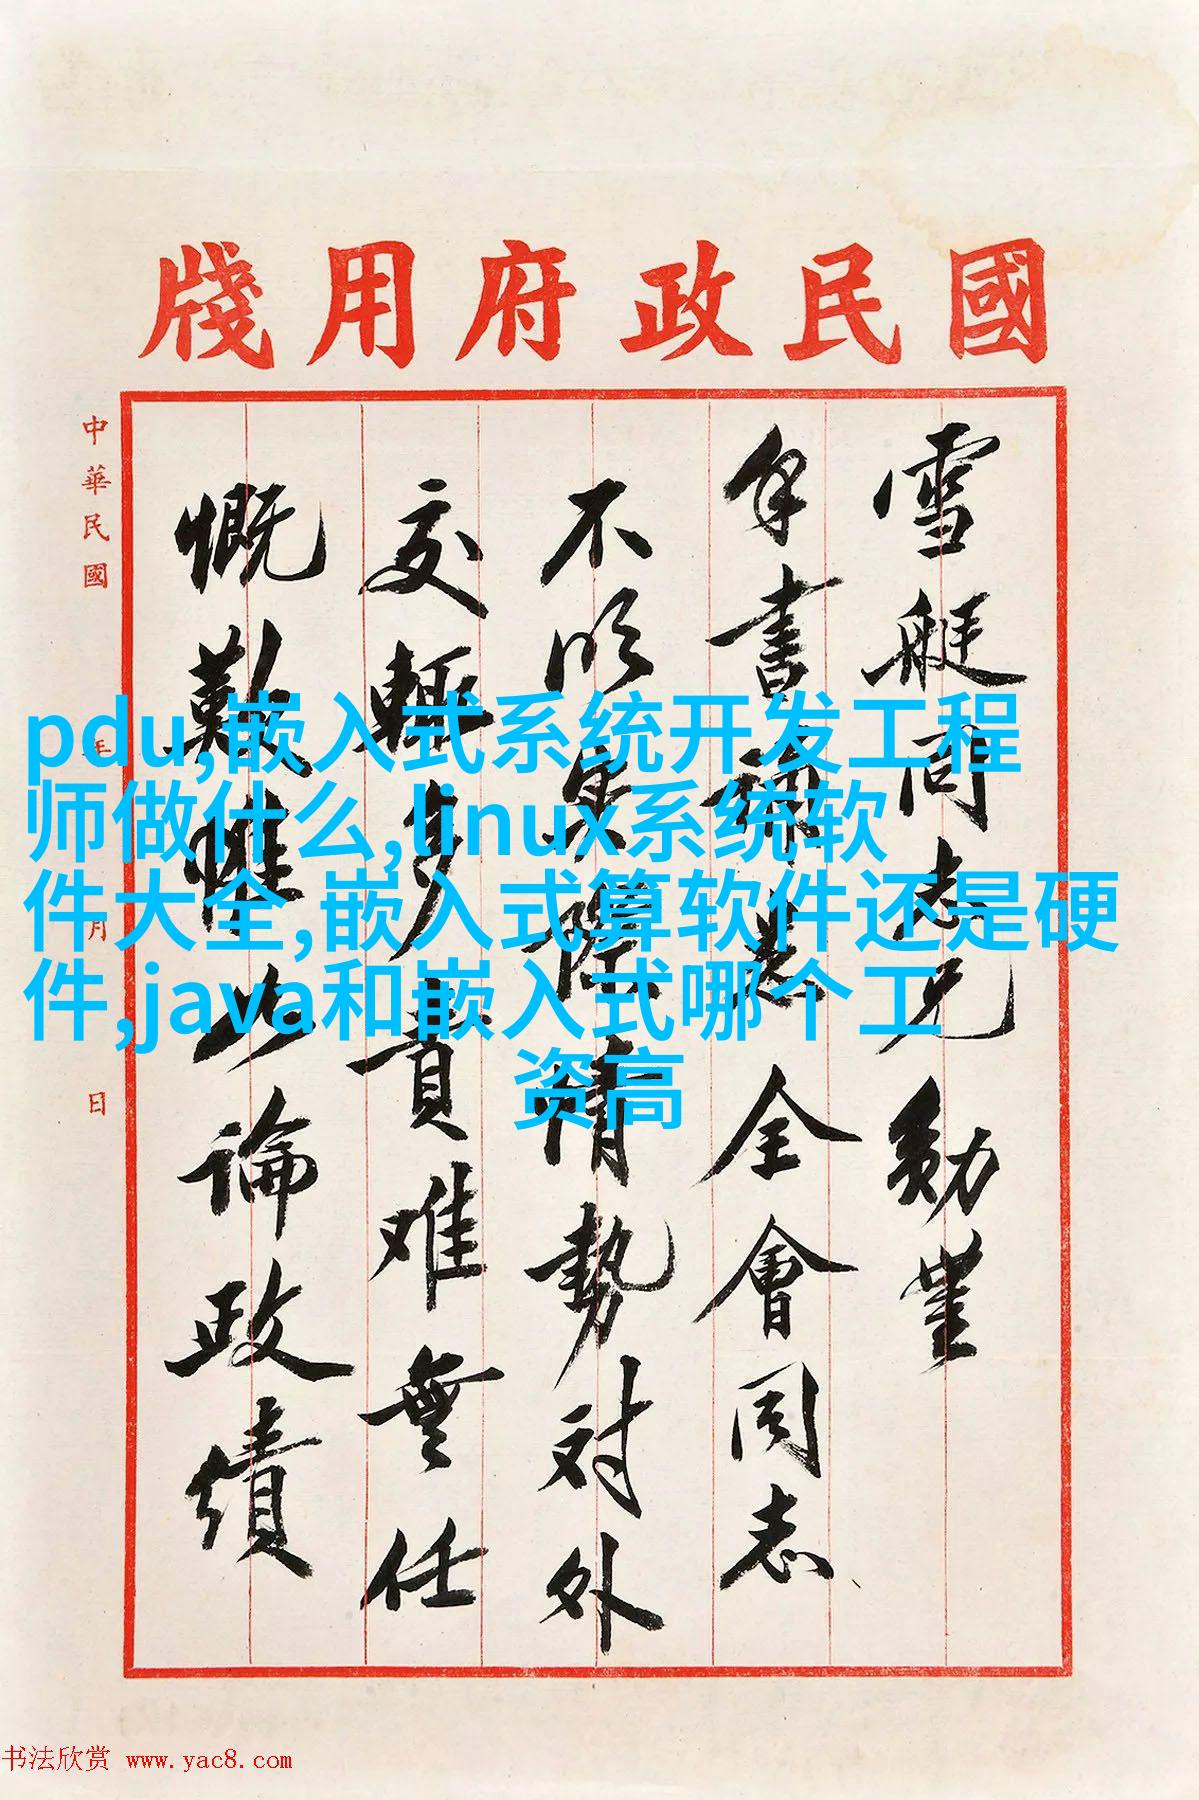 國民政府用牋
雪艇同志兄勛鑒
手書誦悉全會同志
不明實際情勢対外
交輒多責难無任
慨歎惟以論政績
中華民國 年 月 日
pdu,嵌入式系统开发工程
师做什么,linux系统软
件大全,嵌入式算软件还是硬
件,java和嵌入式哪个工
资高
书法欣赏 www.yac8.com